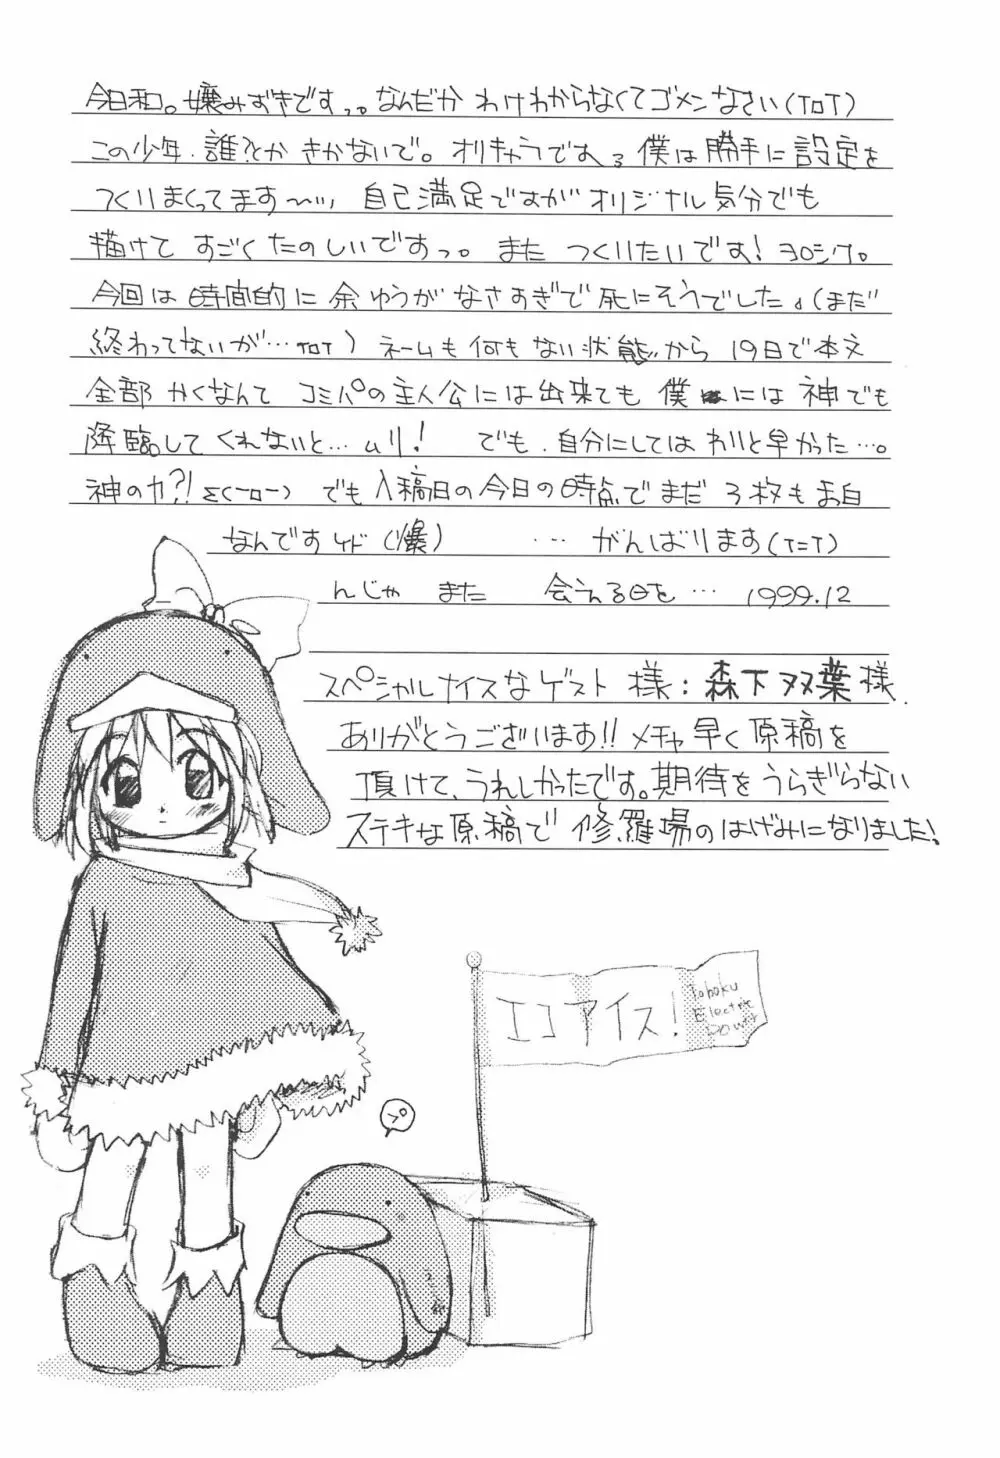 今日和。嬢みずきですっ。なんだか わけわからなくてゴメンなさい(ToT)
この少年、誰?とか きかないで。オリキャラです。僕は勝手に設定を
つくりまくってます〜いい 自己満足ですが オリジナル気分でも
描けて すごくたのしいですっ。また つくりたいです! ヨロシク。
今回は時間的に余ゆうがなさすぎで死にそうでした。(まだ
終わってないが…ToT) ネームも何もない状態から 19日で本文
全部 かくなんて コミパの主人公には出来ても 僕には 神でも
降臨してくれないと…ムリ! でも、自分にしてはわりと早かった…。
神の力?! Σ(ーロー) でも入稿日の今日の時点でまだ 3枚もま白
なんですケド(爆) … がんばります(T=T)
んじゃ また 会える日を… 1999.12
スペシャルナイスなゲスト 様:森下双葉様
ありがとうございます!! メチャ早く原稿を
頂けて、うれしかったです。期待をうらぎらない
ステキな原稿で 修羅場のはげみになりました!
エコアイス!
Tohoku
Electric
Power